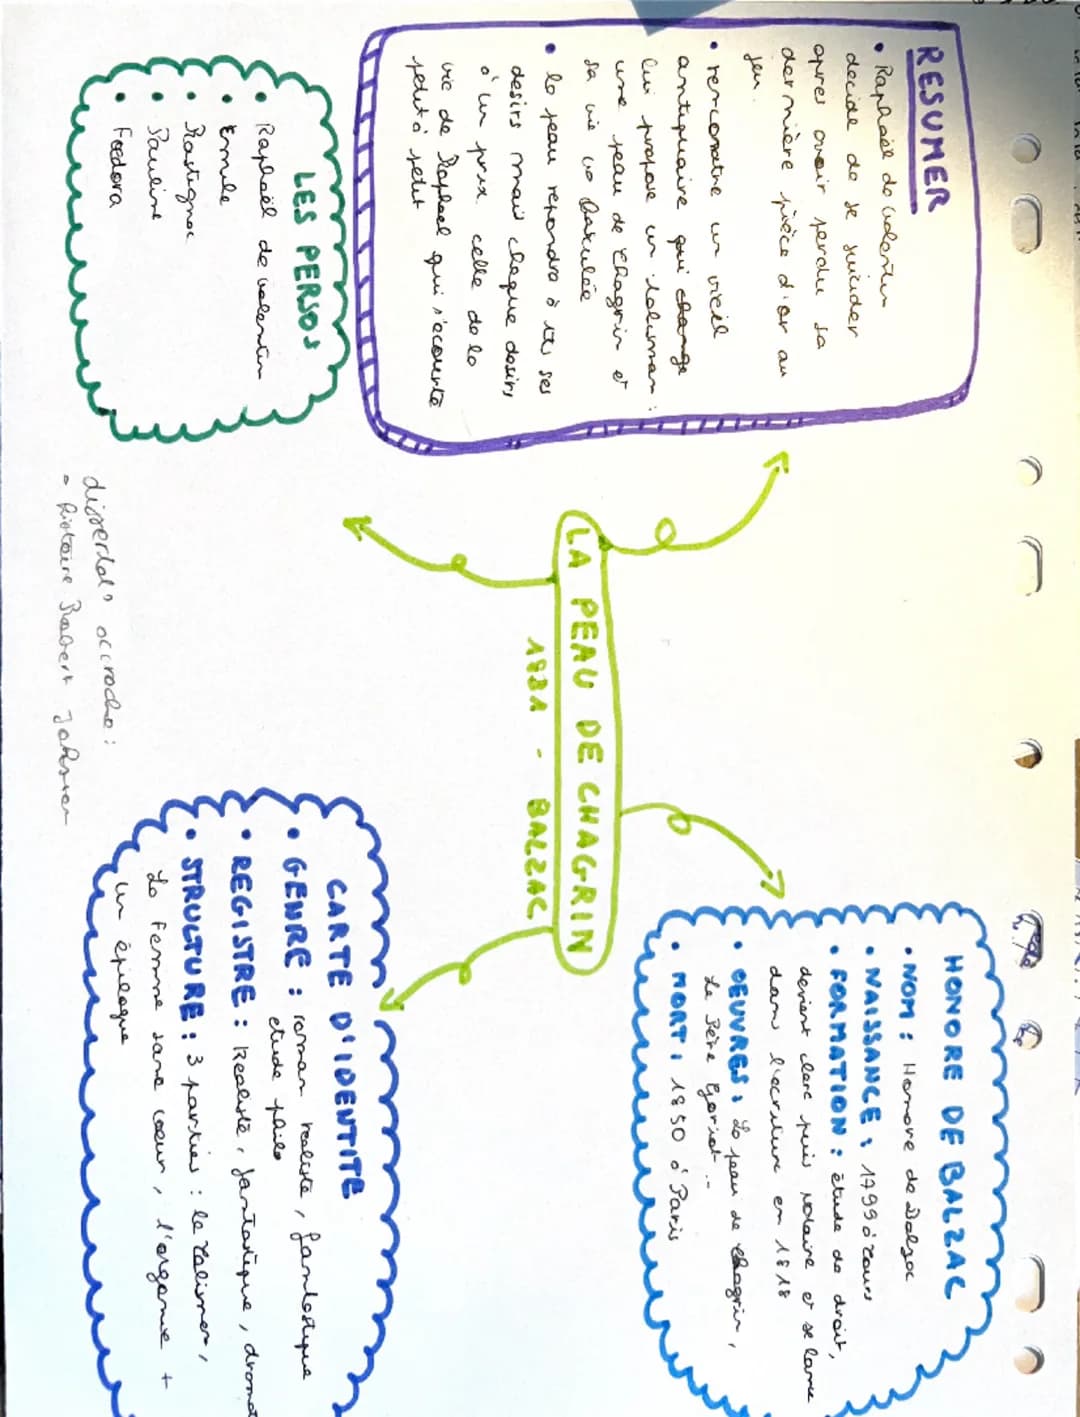 RESUMER
• Raphaël de Valentin
decide de se suicider
apres avoir perdu sa
dernière pièce d'or au
jeu.
• rencontre un vieil
antiquaire qui change
lui propose un talisman :
une peau de chagrin et
sa vie va basculée
• la peau repondra à tts ses
desirs mais chaque desirs
à un prix. celle de la
vie de Raphael qui s'ecourte
petit à petit
LES PERSOS
• Raphaël de valentin
• Emile
• Rastignac
• Pauline
• Foedora
LA PEAU DE CHAGRIN
1831 - BALZAC
dissertat° accroche :
- histoire Robert Johnson
HONORE DE BALZAC
• NOM : Honore de Balzac
• NAISSANCE : 1799 à Tours
• FORMATION : étude de droit,
devient clerc puis notaire et se lance
dans l'ecriture en 1818
• OEUVRES : La peau de chagrin,
Le Père Goriot...
• MORT : 1850 à Paris
CARTE D'IDENTITE
• GENRE : roman realiste, fantastique
etude philo
• REGISTRE : Realiste, fantastique, dramat
• STRUCTURE : 3 parties : le Talisman,
La Femme sans coeur, l'argonie +
un épilogue